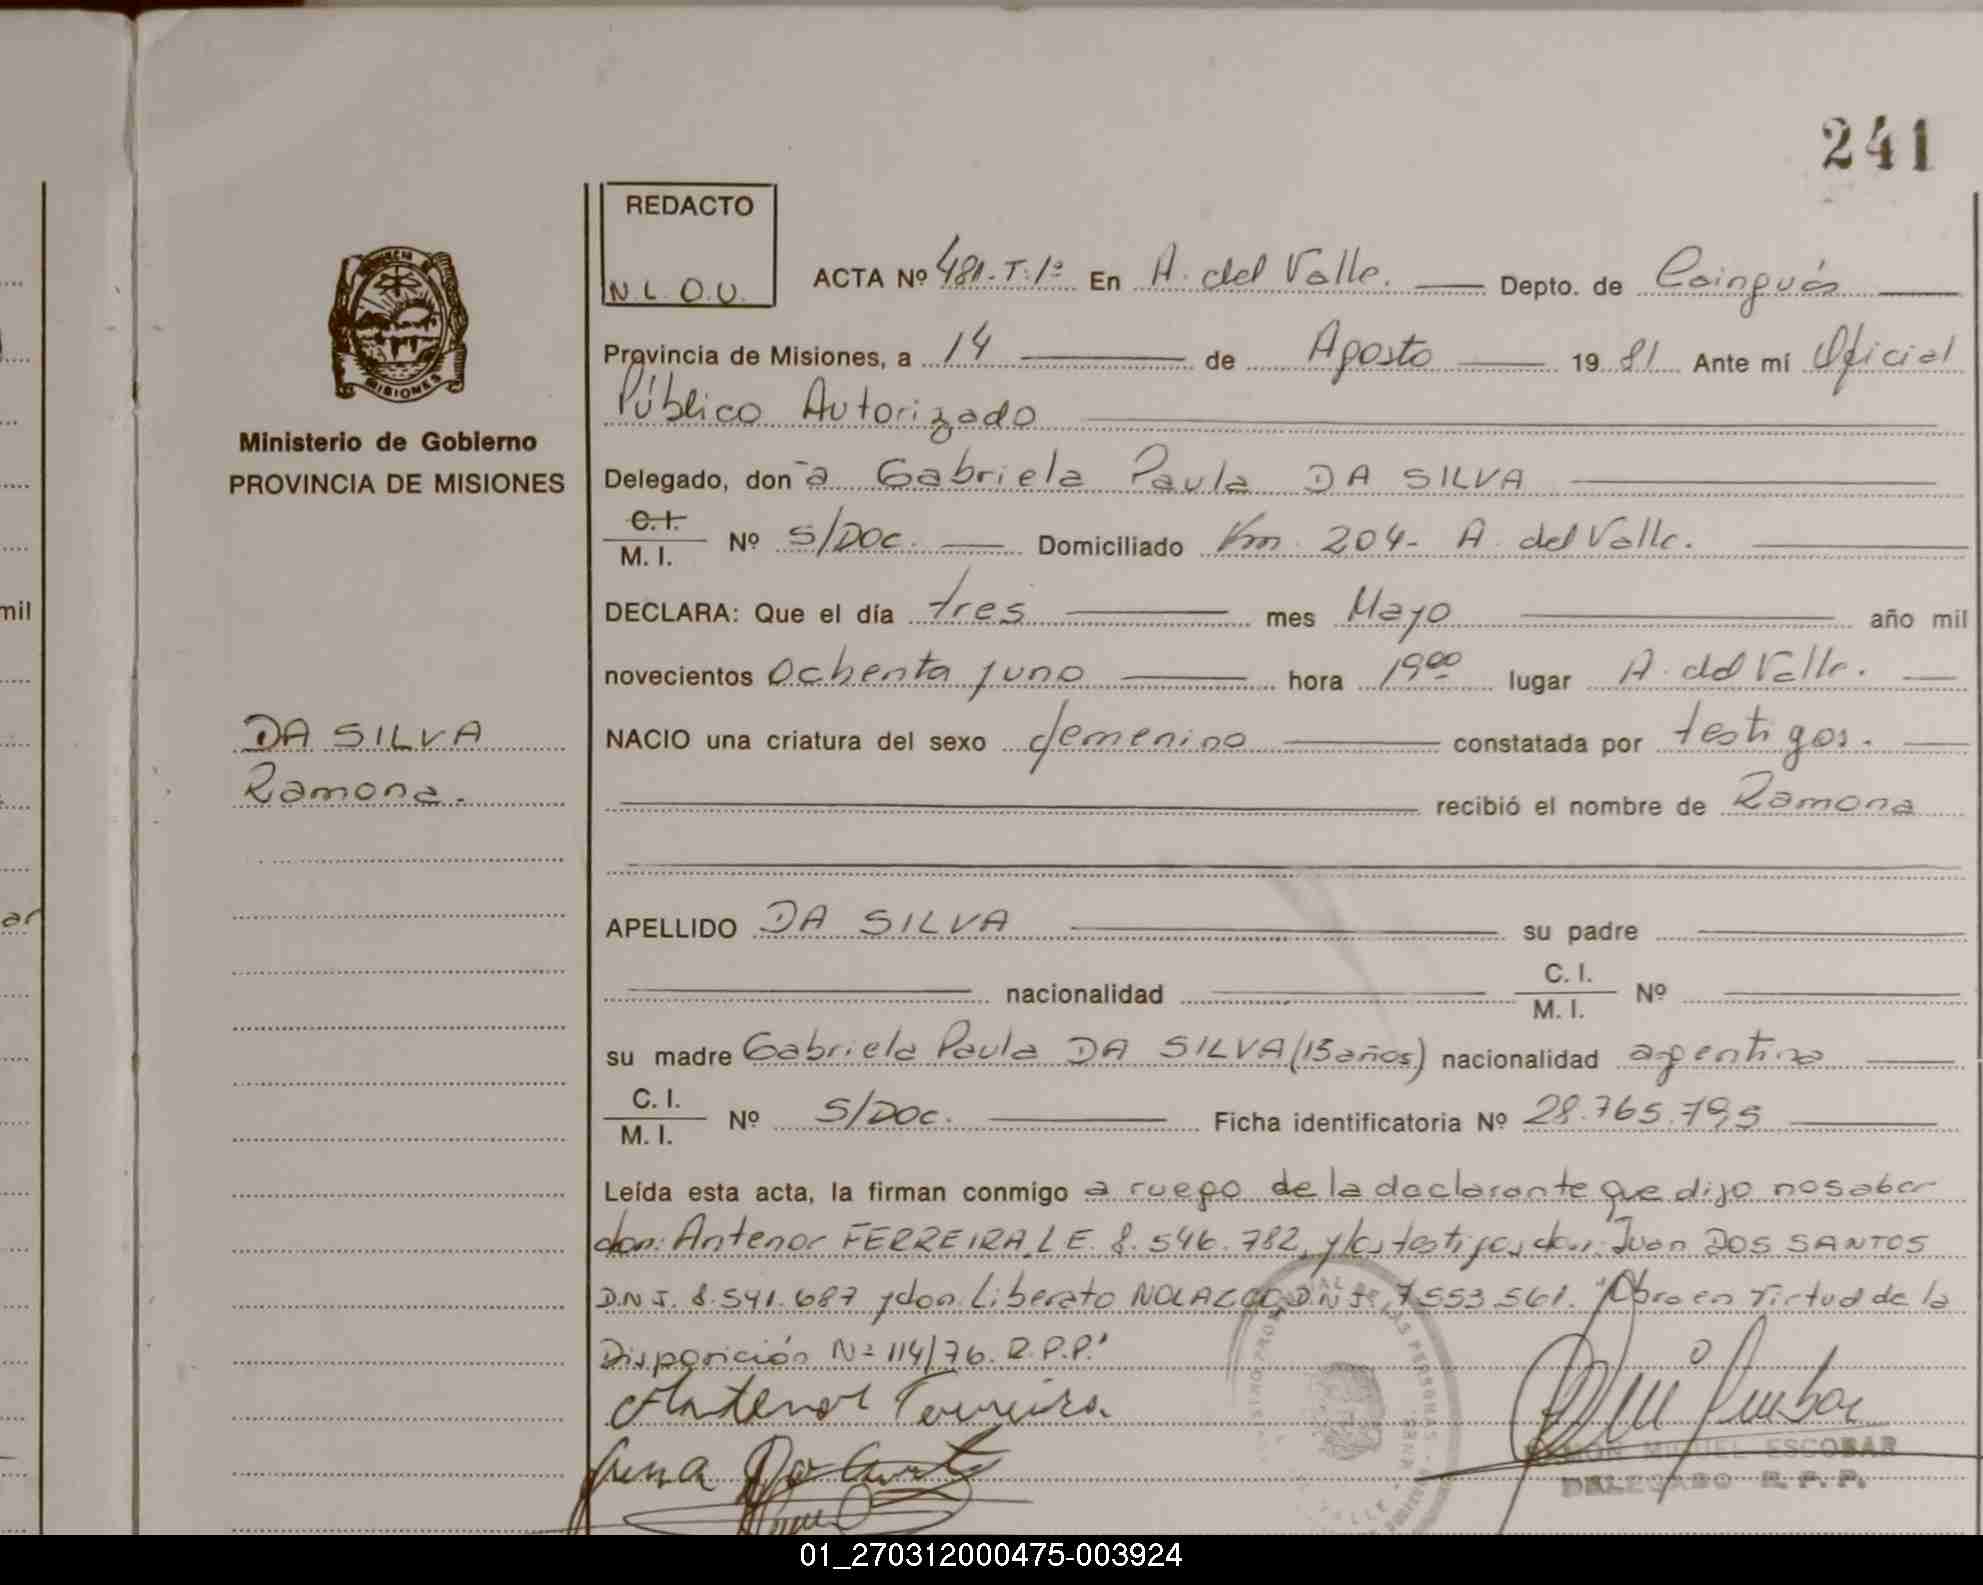 241
REDACTO
N.L.O.U.
ACTA Nº 481-T.1º En A. del Valle. Depto. de Cainguás
Provincia de Misiones, a 14 de Agosto 1981 Ante mí Oficial
Público Autorizado
Ministerio de Gobierno
PROVINCIA DE MISIONES
MISIONES
Delegado, don ~a Gabriela Paula DA SILVA
C. I.
M. I. Nº S/DOC. Domiciliado Km. 204- A. del Valle.
DECLARA: Que el día tres mes Mayo año mil
novecientos ochenta y uno hora 19⁰⁰ lugar A. del Valle.
DA SILVA
Ramona.
NACIO una criatura del sexo femenino constatada por testigos.
recibió el nombre de Ramona
APELLIDO DA SILVA su padre
nacionalidad C. I. M. I. Nº
su madre Gabriela Paula DA SILVA (15 años) nacionalidad argentina
C. I.
M. I. Nº S/DOC. Ficha identificatoria Nº 28.765.795
Leída esta acta, la firman conmigo a ruego de la declarante que dijo no saber
don: Antenor FERREIRA L E. 8.546.782, y los testigos, don: Juan DOS SANTOS
D.N.I. 8.541.687 y don Liberato D.N.I. 7.553.561. "Obro en virtud de la
Disposición Nº 114/76. R.P.P."
Antenor Ferreira
RAMON MIGUEL ESCOBAR
DELEGADO R. P. P.
mil
ar
01_270312000475-003924